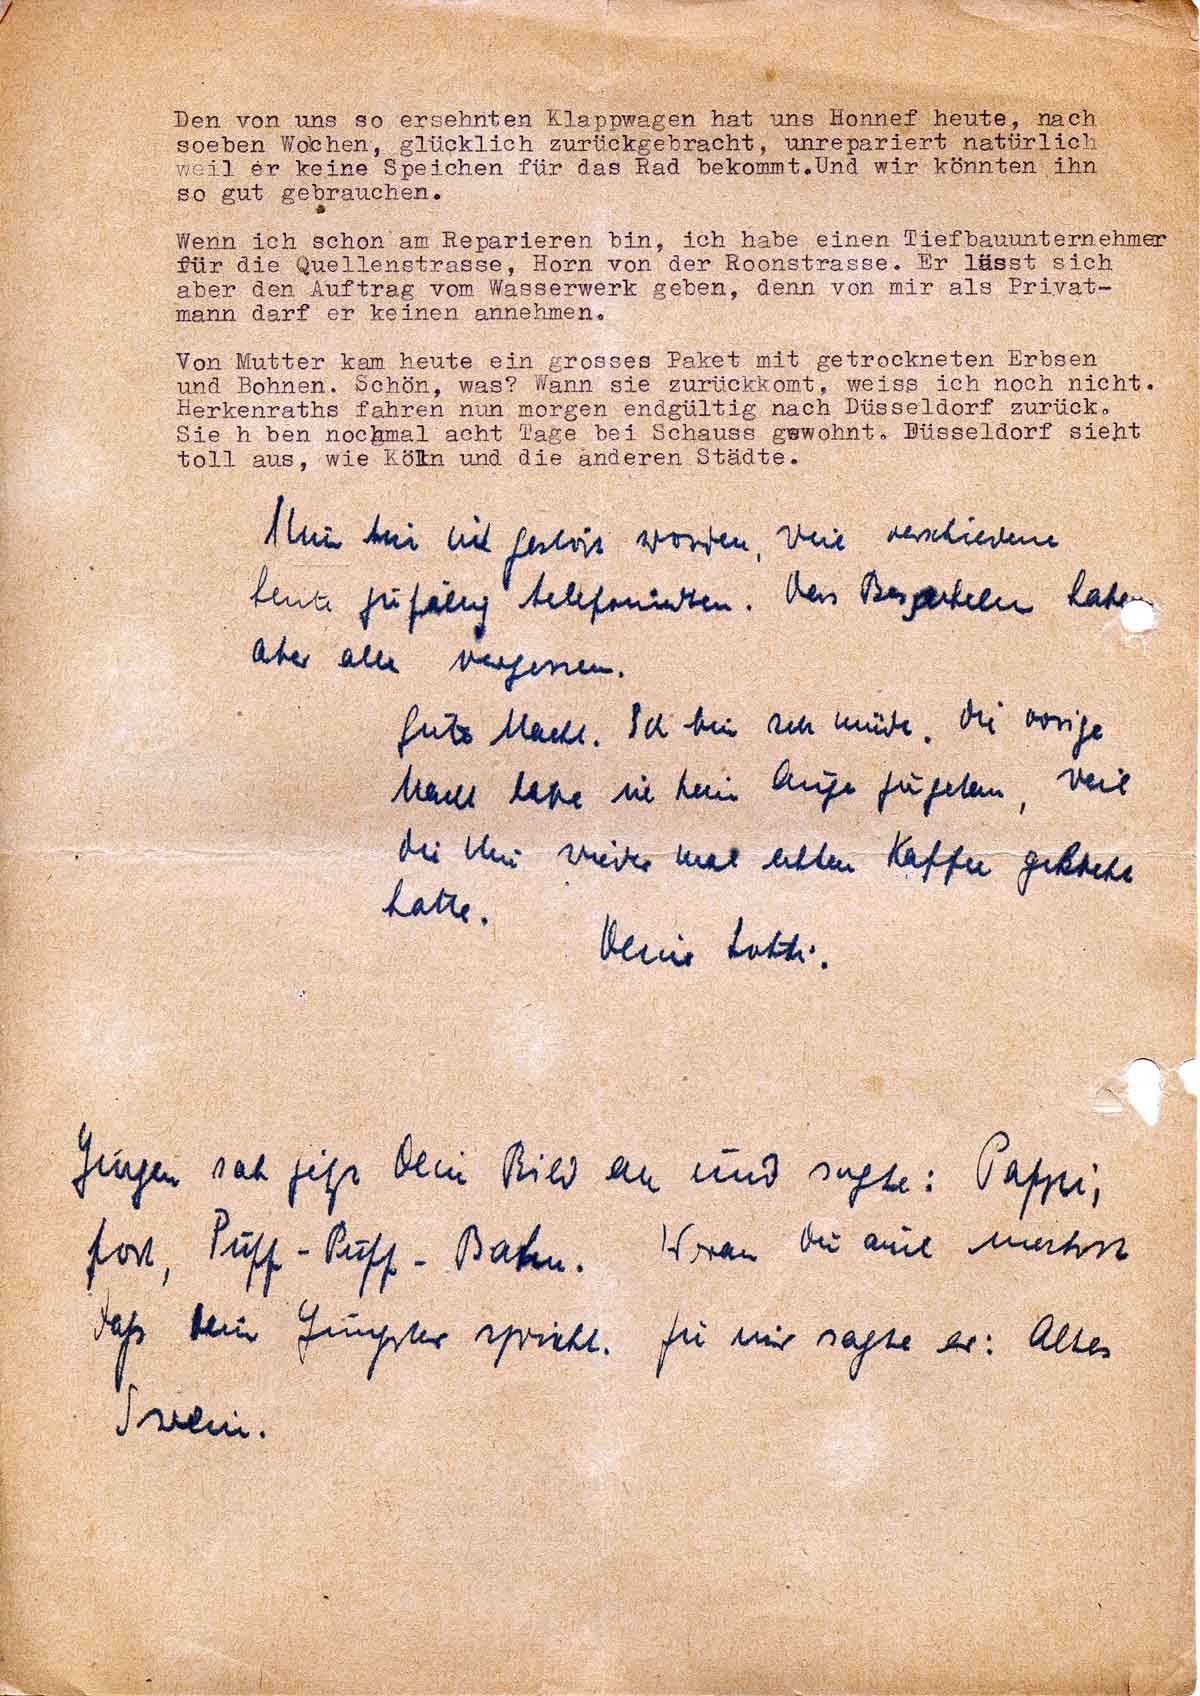 Den von uns so ersehnten Klappwagen hat uns Honnef heute, nach
soeben Wochen, glücklich zurückgebracht, unrepariert natürlich
weil er keine Speichen für das Rad bekommt.Und wir könnten ihn
so gut gebrauchen.
Wenn ich schon am Reparieren bin, ich habe einen Tiefbauunternehmer
für die Quellenstrasse, Horn von der Roonstrasse. Er lässt sich
aber den Auftrag vom Wasserwerk geben, denn von mir als Privat-
mann darf er keinen annehmen.
Von Mutter kam heute ein grosses Paket mit getrockneten Erbsen
und Bohnen. Schön, was? Wann sie zurückkomt, weiss ich noch nicht.
Herkenraths fahren nun morgen endgültig nach Düsseldorf zurück.
Sie h ben nochmal acht Tage bei Schauss gewohnt. Düsseldorf sieht
toll aus, wie Köln und die anderen Städte.
Nun bin ich gestört worden, weil verschiedene
Leute zufällig telefonierten. Das Bezahlen haben
aber alle vergessen.
Gute Nacht. Ich bin sehr müde. Die vorige
Nacht habe ich kein Auge zugetan, weil
die wieder mal echten Kaffee gekocht
hatte.
Deine Lotti.
Jürgen sah jetzt Dein Bild an und sagte: Pappi,
fort, Puff-Puff-Bahn. Woran Du auch merkst
daß Dein Jüngster spricht. Zu mir sagte er: Altes
Swein.